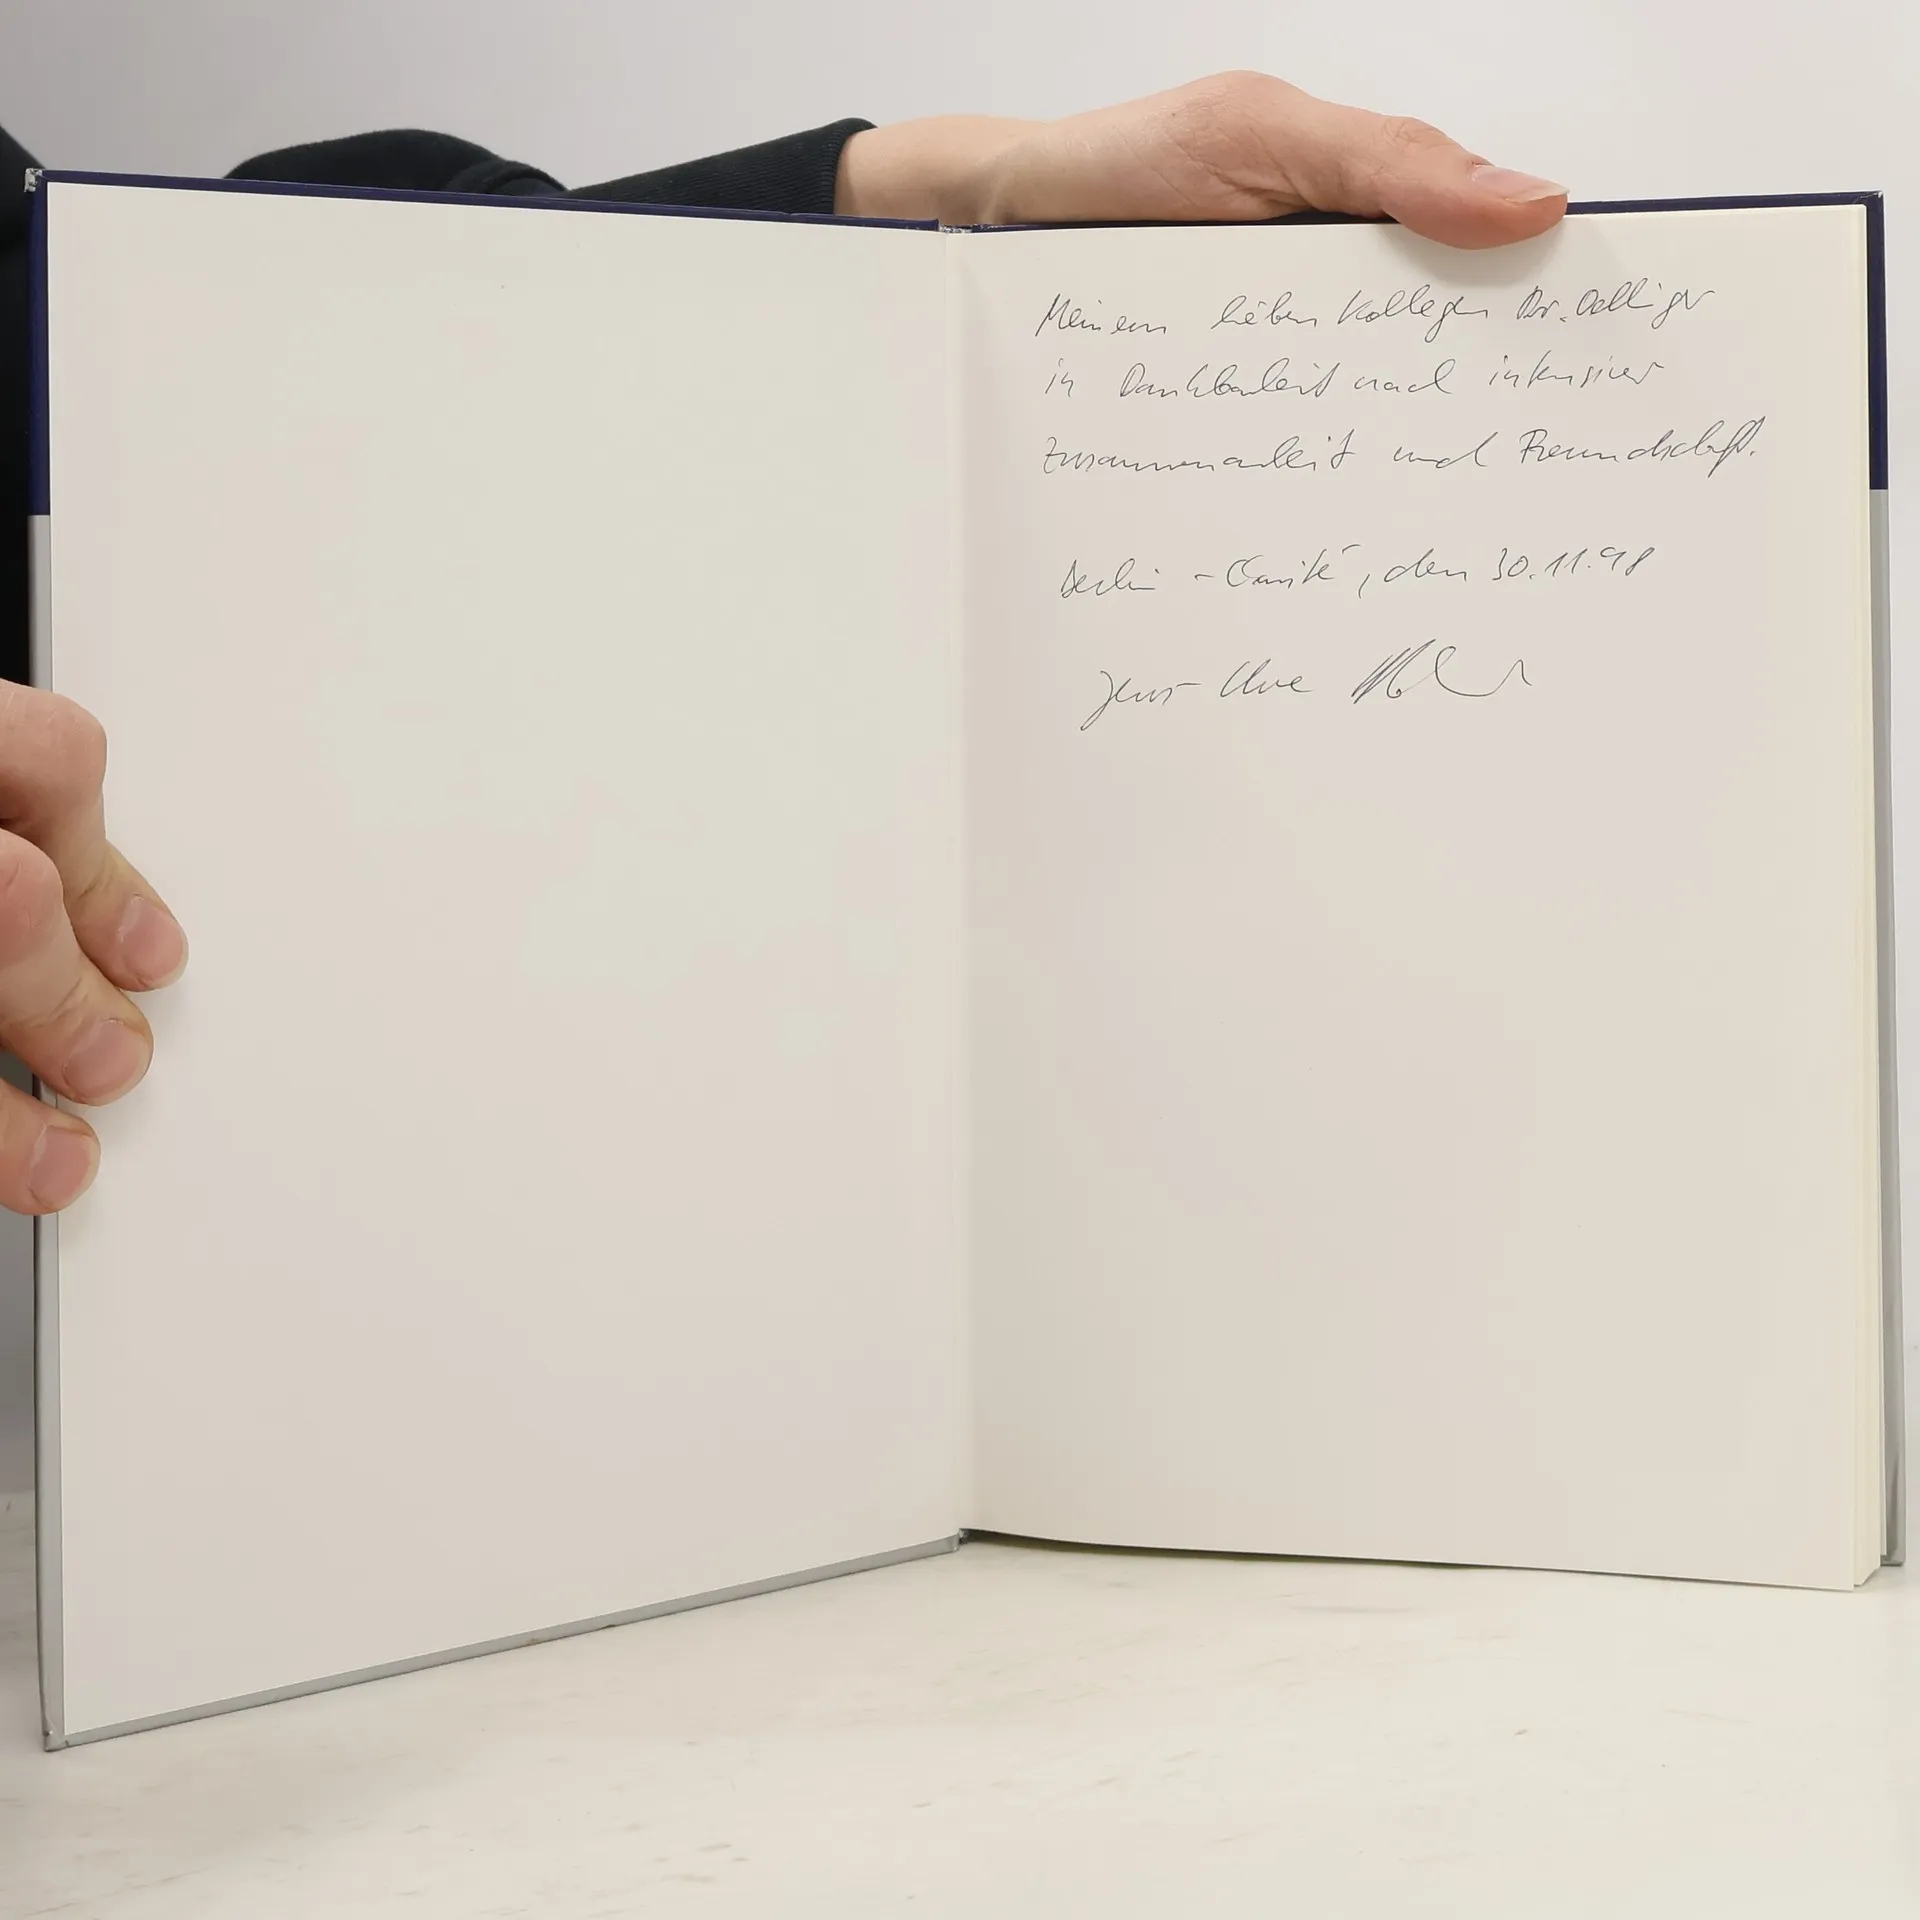 Meinem lieben Kollegen Dr. Oelliger
in Dankbarkeit nach intensiver
Zusammenarbeit und Freundschaft.
Berlin - Charité, den 30.11.98
Jens-Uwe